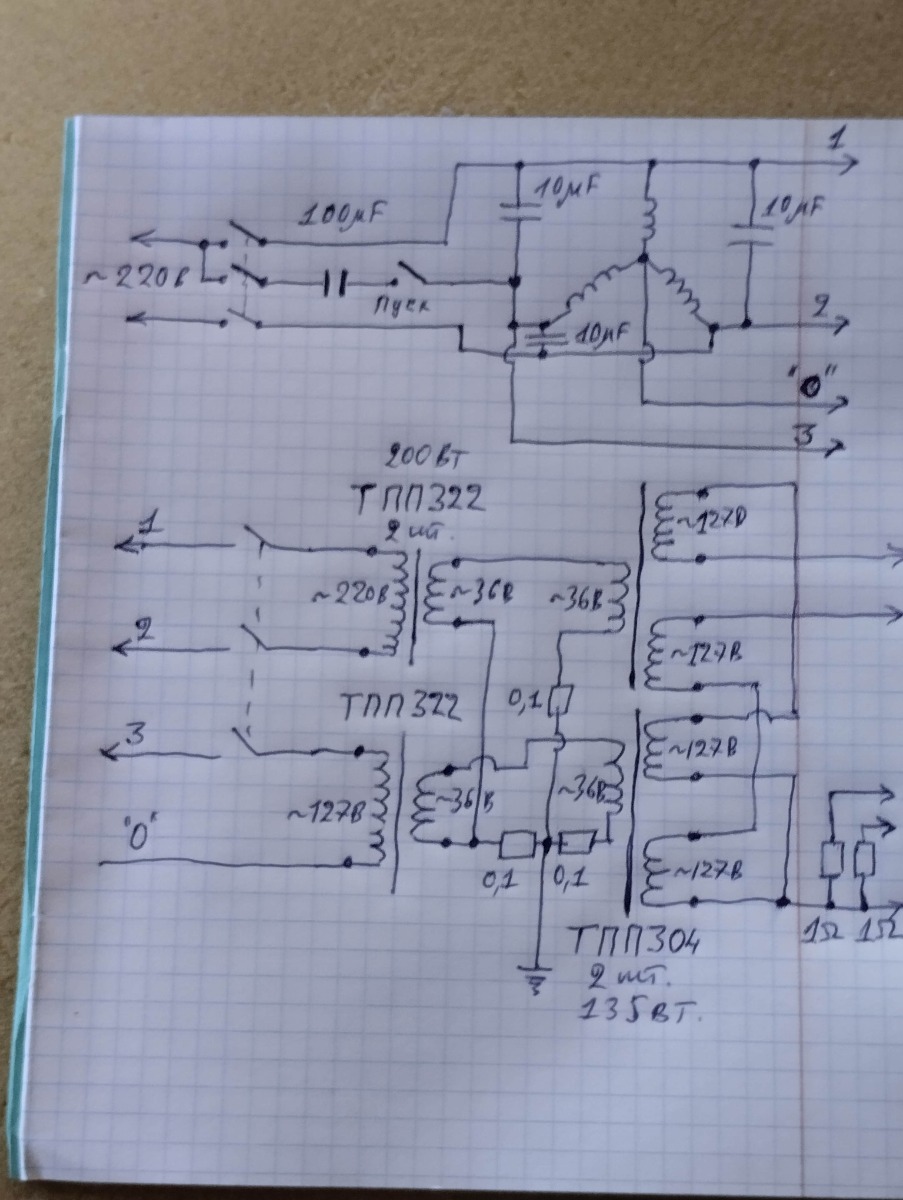 1
100µF
10µF
10µF
~220В
Пуск
2
10µF
"0"
3
200ВТ
ТПП322
2 шт.
1
~127В
~220В
~36В
~36В
2
~127В
0,1
ТПП322
3
~127В
~36В
~36В
~127В
"0"
~127В
0,1
0,1
1Ω
1Ω
ТПП304
2 шт.
135ВТ.